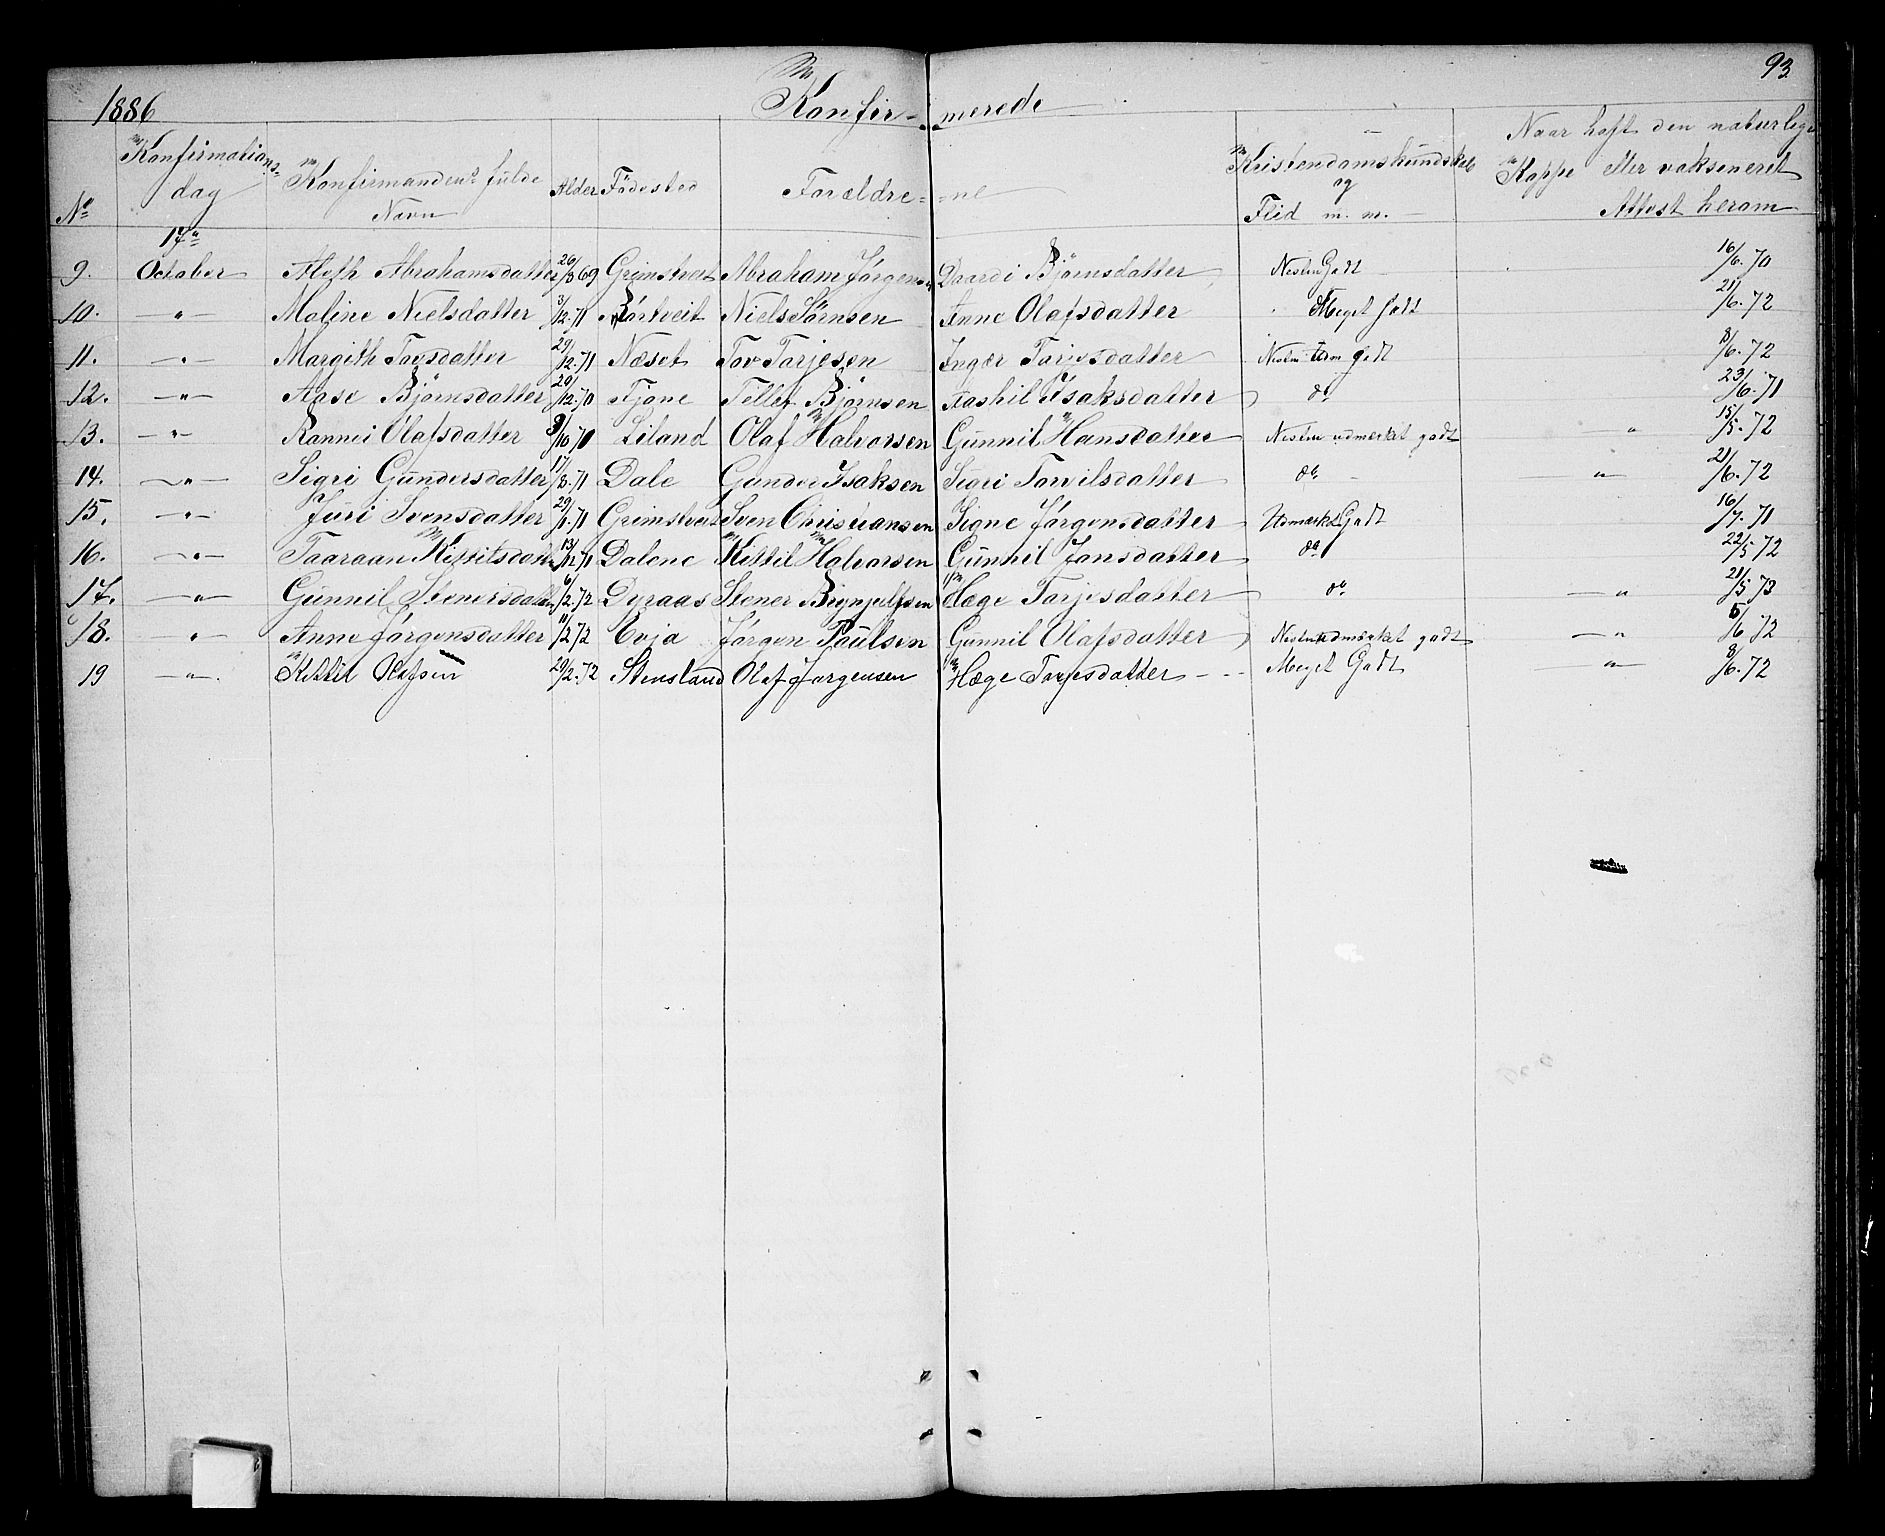 93.
1886 Konfir- merede
No Konfirmations- dag Konfirmandens fulde Navn Alder Födested Forældre- ne Kristendomskundskab og Flid m. m. Naar haft den naturlige Koppe eller vakseneret Attest herom
17de
9. October Aloth Abrahamsdatter 26/8 69 Grimstveit Abraham Jörgensen Daardi Björnsdatter Nesten Godt 16/6. 70
10. —"— Maline Nielsdatter 3/12. 71 Börtveit Niels Sörnsen Anne Olafsdatter Meget godt 21/6. 72
11. —"— Margith Tovsdatter 29/12. 71 Næset Tov Tarjesen Inger Tarjesdatter Nesten Udm godt 8/6. 72
12. —"— Aase Björnsdatter 29/12. 70 Tjöne Tellef Björnsen Aashil Isaksdatter do 23/6. 71
13. —"— Rannei Olafsdatter 9/10 70 Liland Olaf Halvorsen Gunnil Hansdatter Nesten udmerket godt —"— 15/5. 72
14. —"— Sigri Gundersdatter 17/8. 71 Dale Gunder Isaksen Sigri Tarvilsdatter do — —"— 21/6. 72
15. —"— Juri Svensdatter 29/1. 71 Grimstveit Sven Christiansen Signe Jörgensdatter Udmærket Godt 16/7. 71
16. —"— Taaraan Kittilsdatter 13/12 71 Dalene Kittil Halvorsen Gunnil Jonsdatter do 22/5. 72
17. —"— Gunnil Stenersdatter 6/2. 72 Dyraas Stener Brynjulfsen Hæge Tarjesdatter do —"— 21/5 73
18. " Anne Jörgensdatter 11/2 72 Evja Jörgen Paulsen Gunnil Olafsdatter Nesten udmærket godt —"— 5/6 72
19 —"— Kittil Olafsen 29/2. 72 Stensland Olaf Jørgensen Hæge Tarjesdatter Meget Godt —"— 8/6. 72